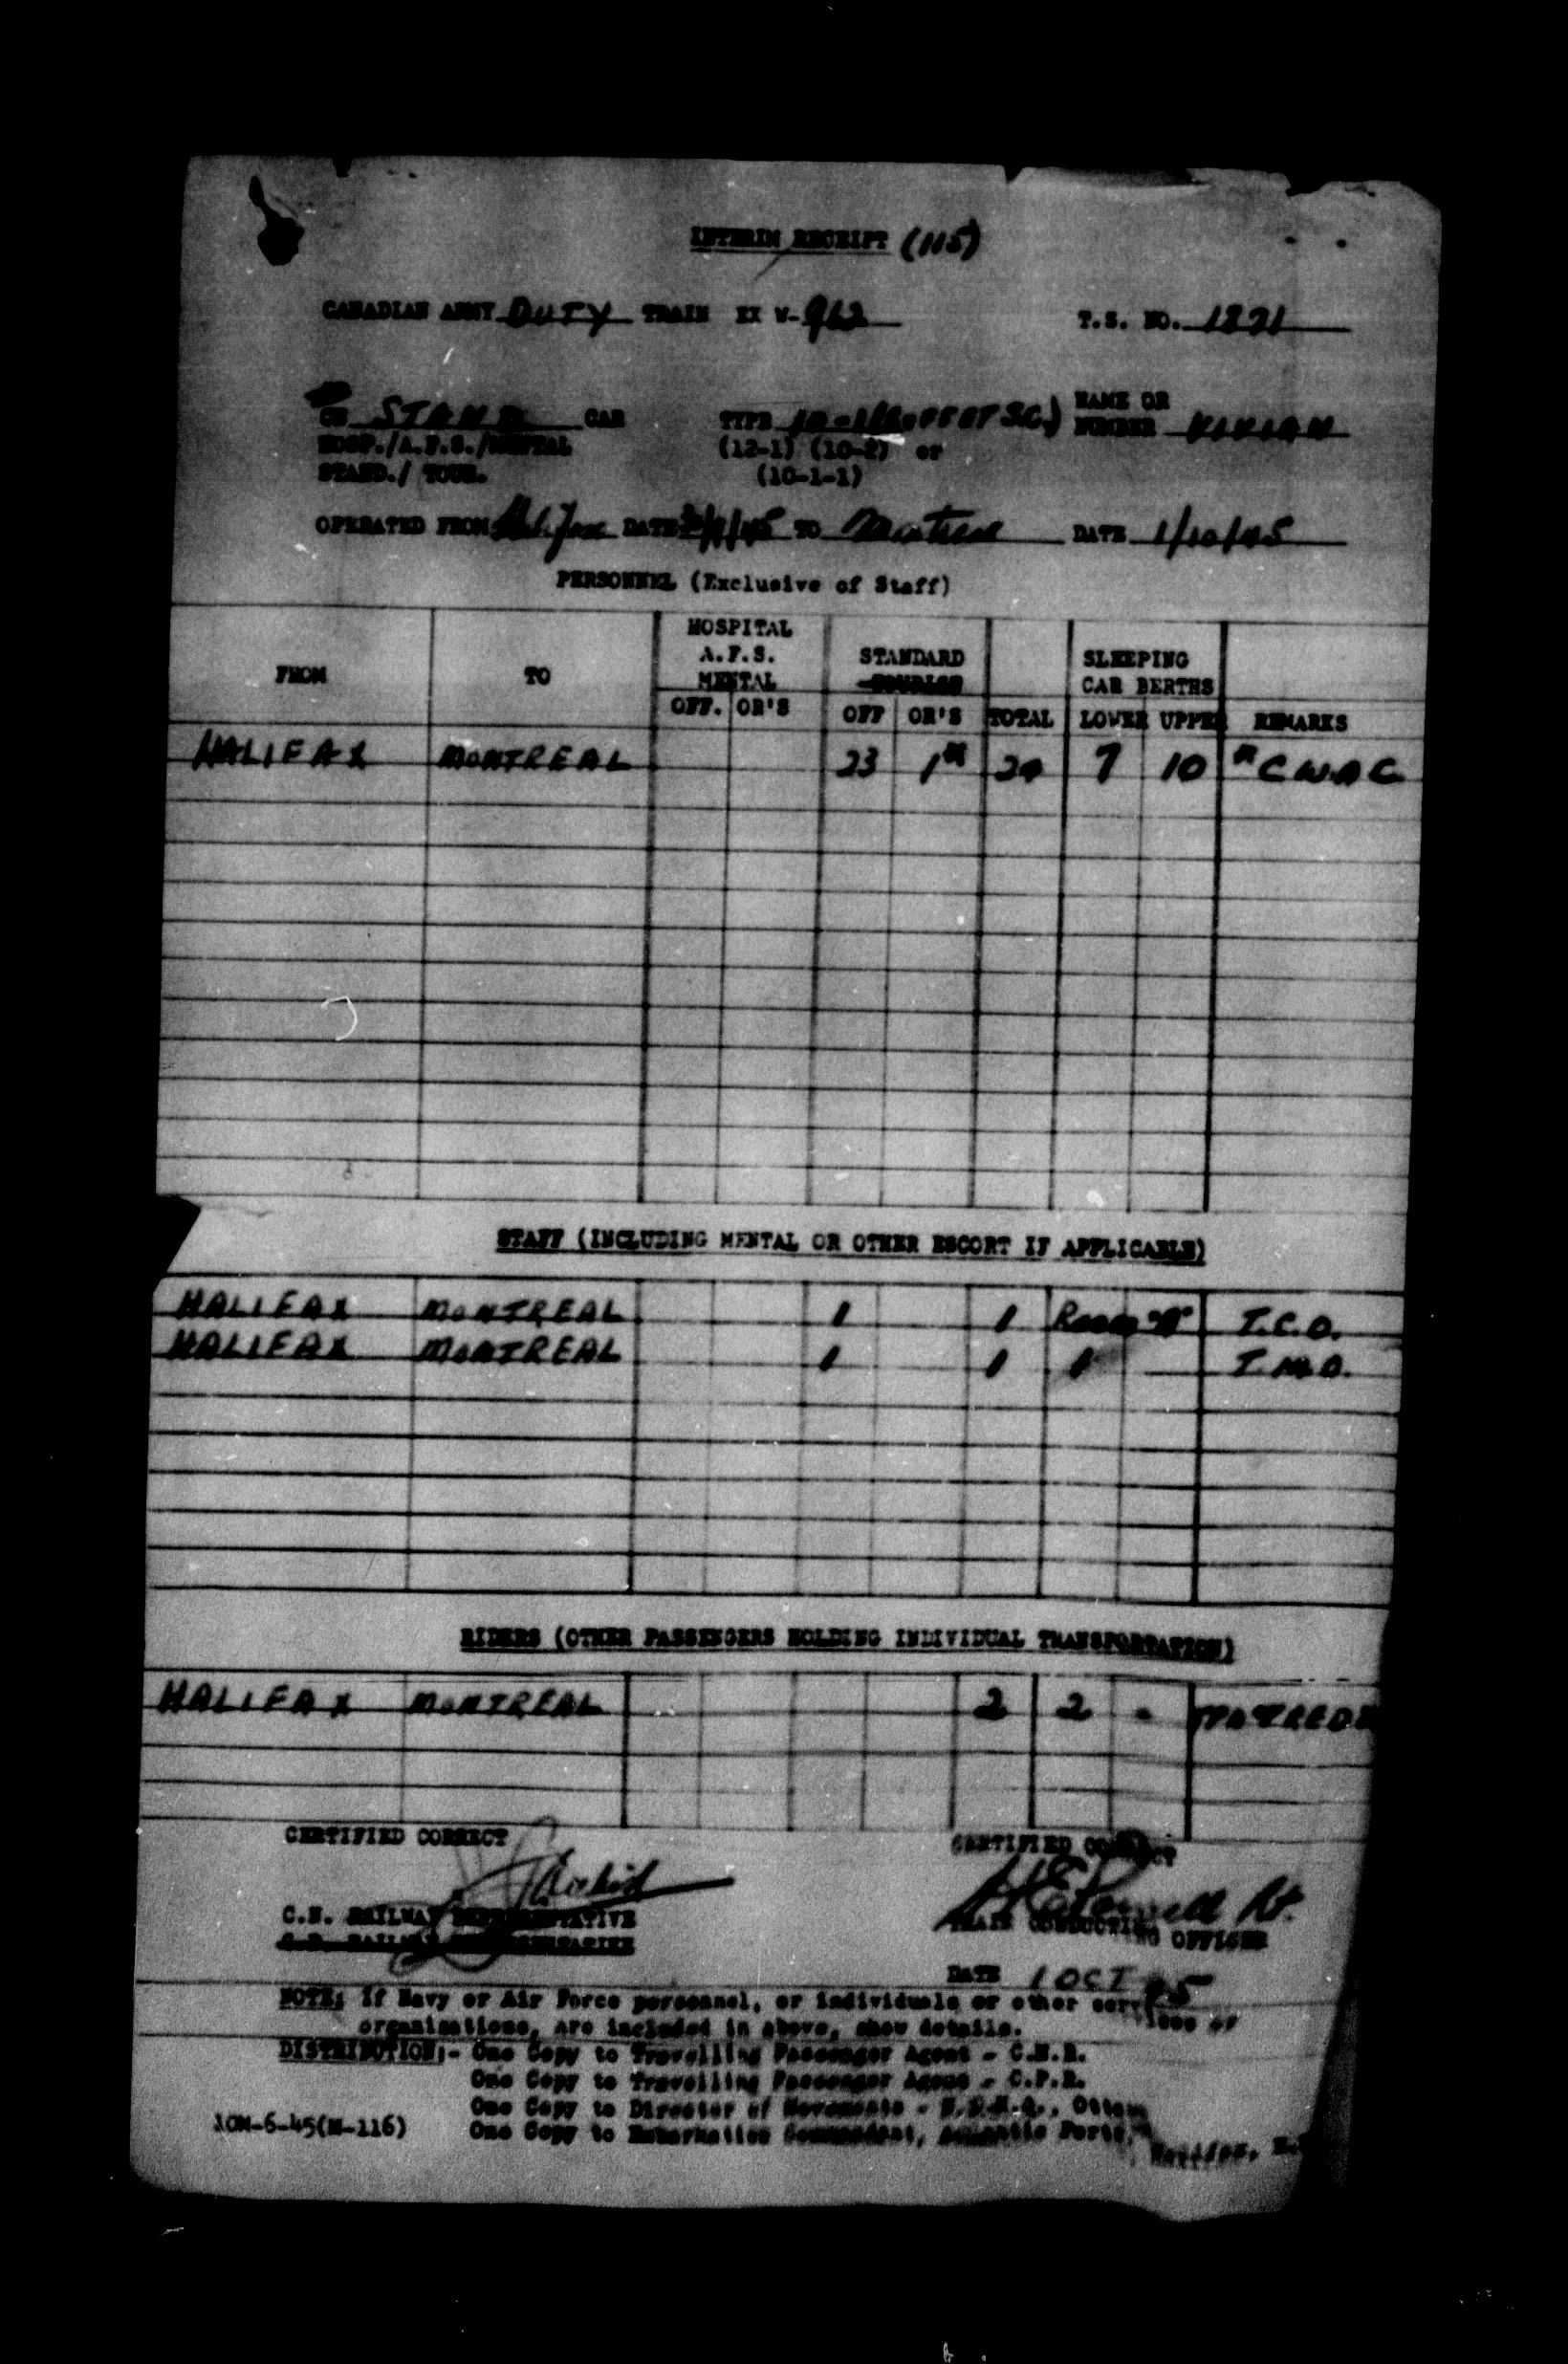 INTERIM RECEIPT (115)
CANADIAN ARMY DUTY TRAIN EX W-962 T.S. NO. 1821
CN STAND CAR TYPE 10-1 (BUFFET S.C.) NAME OR NUMBER VIVIAN
HOSP./A.F.S./MENTAL (12-1) (10-2) or
STAND./ TOUR. (10-1-1)
OPERATED FROM Halifax DATE TO Montreal DATE 1/10/45
PERSONNEL (Exclusive of Staff)
FROM TO HOSPITAL A.F.S. MENTAL STANDARD TOURIST SLEEPING CAR BERTHS
OFF. OR'S OFF OR'S TOTAL LOWER UPPER REMARKS
HALIFAX MONTREAL 23 1* 24 7 10 *C.W.A.C.
STAFF (INCLUDING MENTAL OR OTHER ESCORT IF APPLICABLE)
HALIFAX MONTREAL 1 1 Room "A" T.C.O.
HALIFAX MONTREAL 1 1 1 T.M.O.
RIDERS (OTHER PASSENGERS HOLDING INDIVIDUAL TRANSPORTATION)
HALIFAX MONTREAL 2 2 -
CERTIFIED CORRECT CERTIFIED CORRECT
C.N. RAILWAY REPRESENTATIVE TRAIN CONDUCTING OFFICER
C.P. RAILWAY REPRESENTATIVE
DATE 1 OCT 45
NOTE: If Navy or Air Force personnel, or individuals or other services or
organizations, are included in above, show details.
DISTRIBUTION:- One Copy to Travelling Passenger Agent - C.N.R.
One Copy to Travelling Passenger Agent - C.P.R.
One Copy to Director of Movements - N.D.H.Q., Ottawa
10M-6-45(M-116) One Copy to Embarkation Commandant, Atlantic Ports, Halifax, N.S.